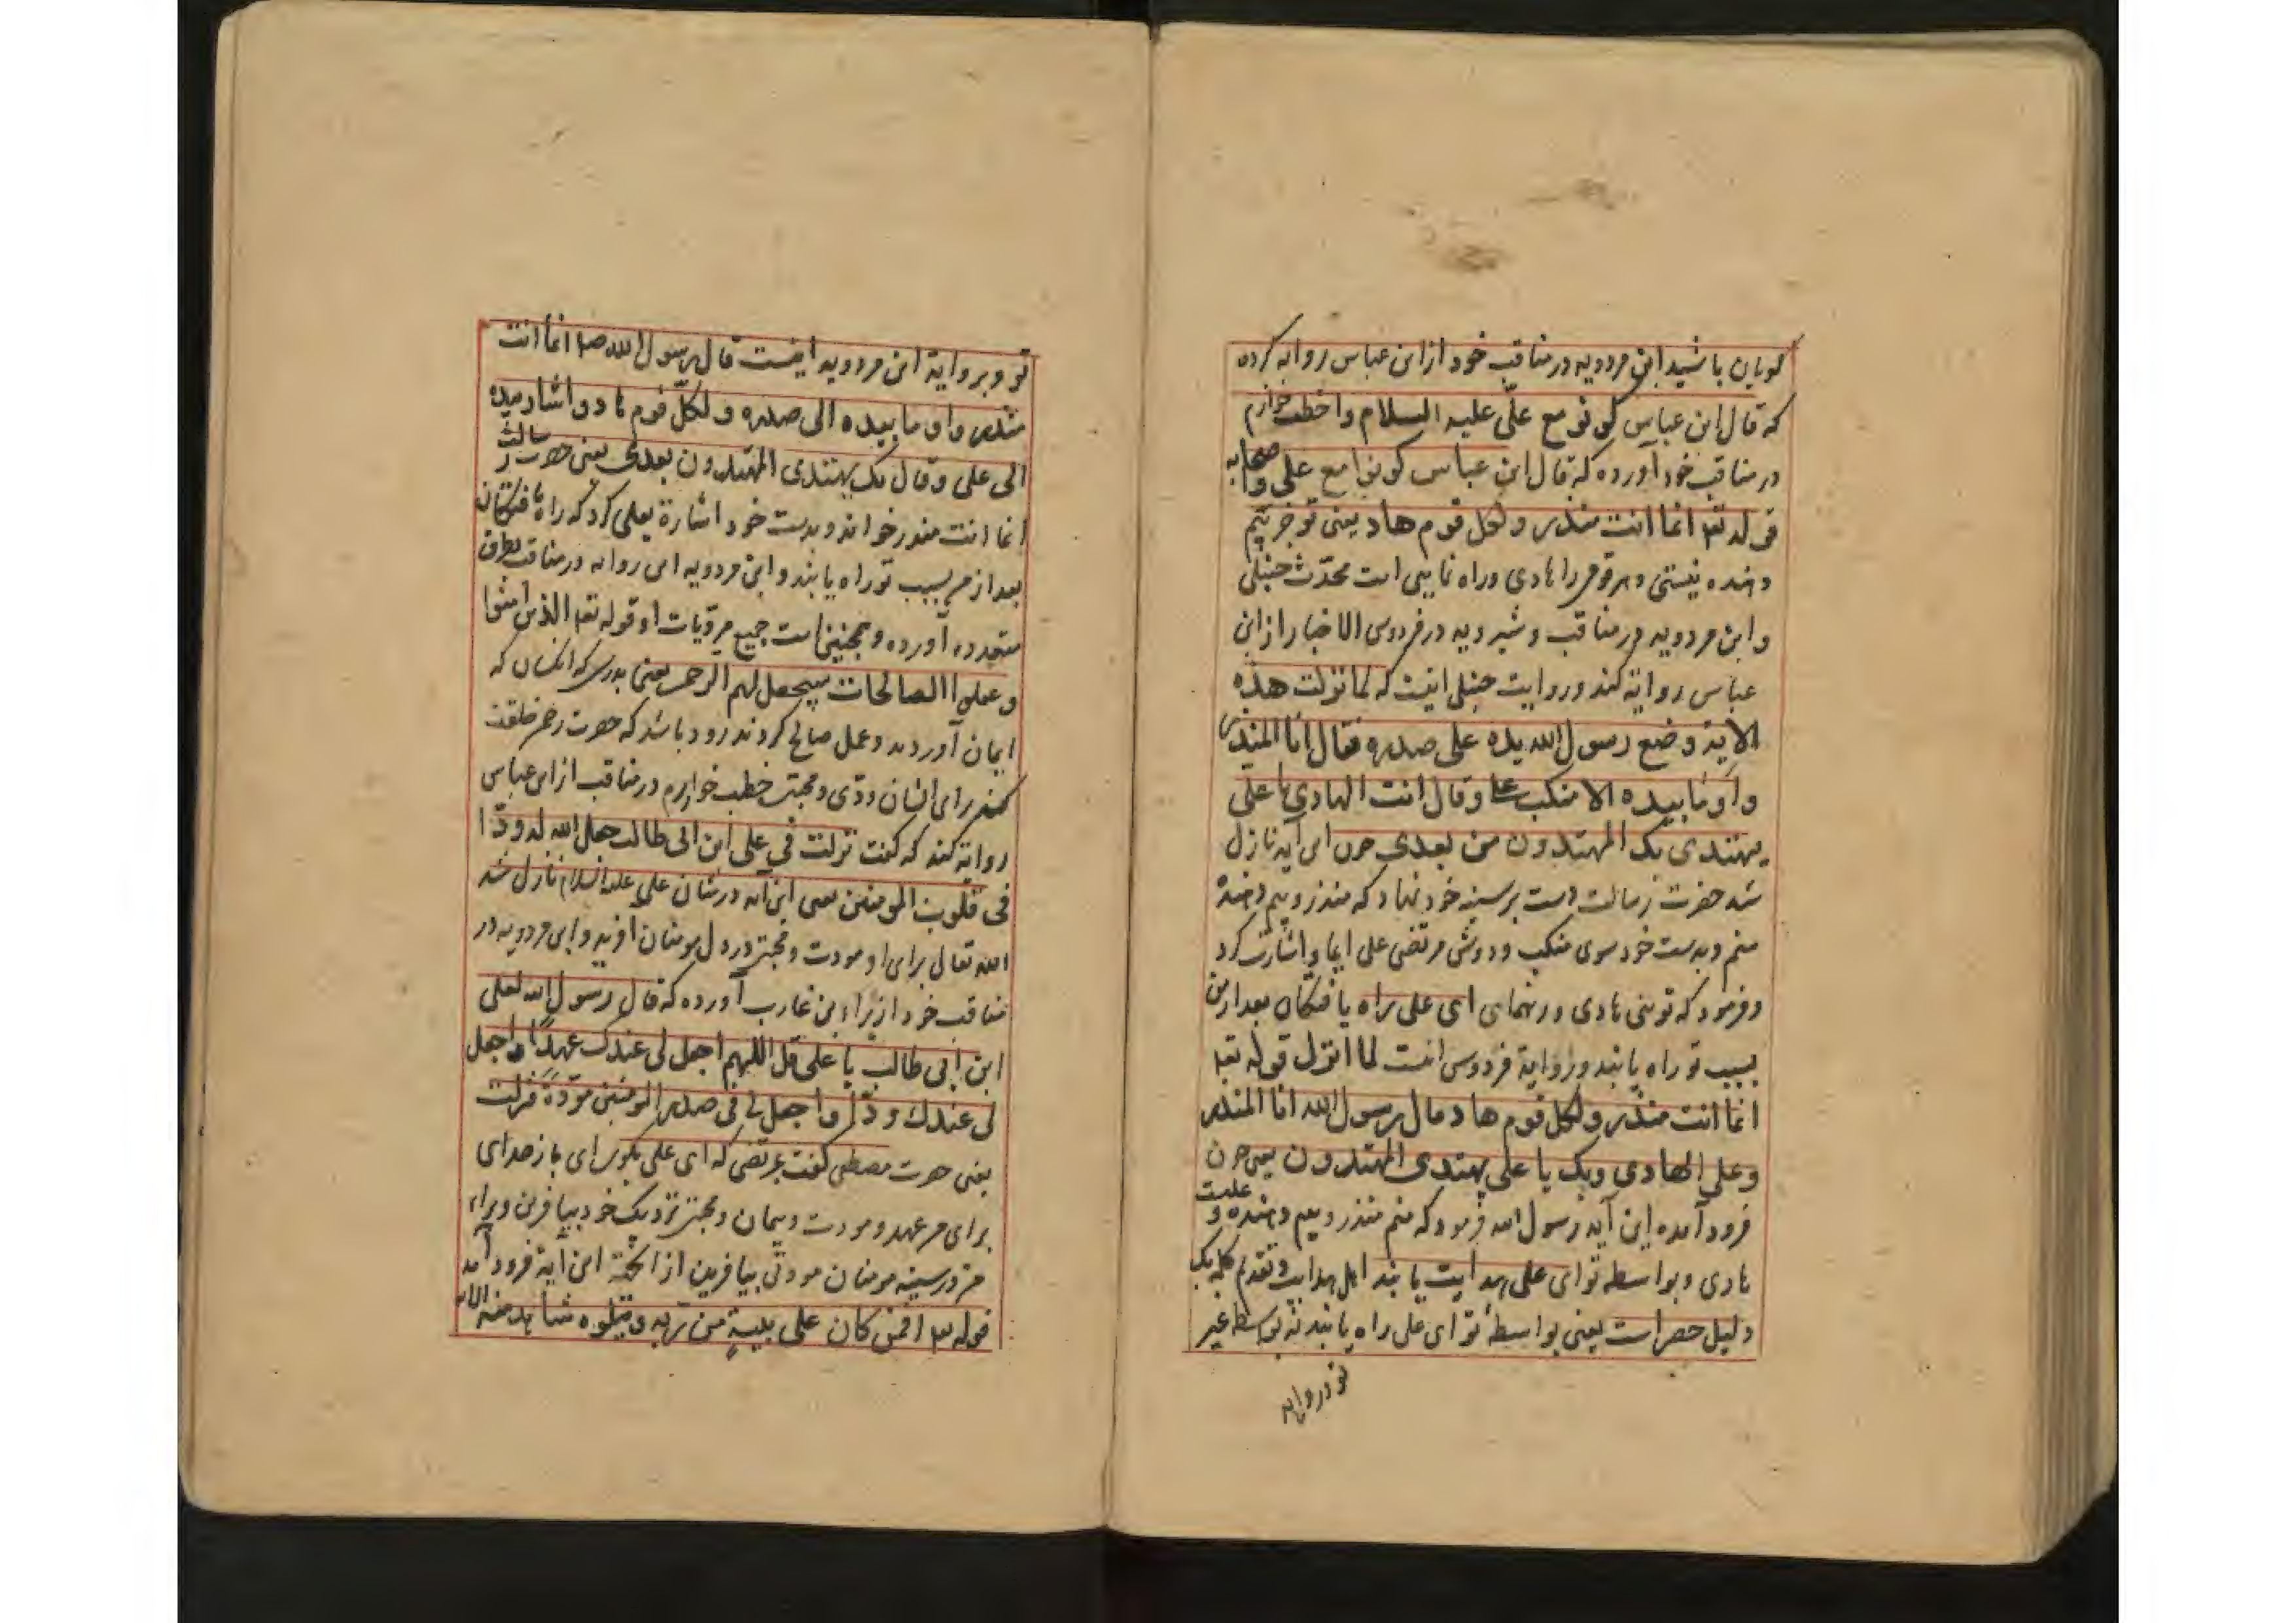 کویان باشید ابن مردویه در مناقب خود از ابن عباس روایه کرده
که قال ابن عباس کونو مع علی علیه السلام واخطب خوارزم
در مناقب خود آورده که قال ابن عباس کونوا مع علی واصحابه
قوله تعه انما انت منذر ولکل قوم هاد یعنی تو جز بیم
دهنده نیستی وهر قومی را هادی وراه نمایی است محدّث حنبلی
وابن مردویه در مناقب وشیرویه در فردوس الاخبار از ابن
عباس روایه کند وروایت حنبلی اینست که لما نزلت هذه
الآیة وضع رسول الله یده علی صدره فقال انا المنذر
واومابیده الا منکب علی وقال انت الهادی یا علی
یهتدی بک المهتدون من بعدی چون این آیه نازل
شد حضرت رسالت دست بر سینه خود نهاد که منذر وبیم دهنده
منم وبدست خود سوی منکب ودوش مرتضی علی ایما واشارت کرد
وفرمود که توئی هادی ورهنمای ای علی راه یافتکان بعد از من
بسبب تو راه یابند وروایة فردوس انست لما انزل قوله تعه
انما انت منذر ولکل قوم هاد قال رسول الله انا المنذر
وعلی الهادی وبک یا علی یهتدی المهتدون یعنی چون
فرود آمده این آیه رسول الله فرمود که منم منذر وبیم دهنده و علیست
هادی وبواسطه تو ای علی هدایت یابند اهل هدایت وتقدیم کلمه بک
دلیل حصر است یعنی بواسطه تو ای علی راه یابند نه بواسطه غیر
تو وبروایه
تو وبروایة ابن مردویه اینست قال رسول الله صلا انما انت
منذر واو ما بیده الی صدره ولکل قوم هاد واشار بیده
الی علی وقال بک یهتدی المهتدون بعدی یعنی حضرت رسالت
انما انت منذر خواند وبدست خود اشارة بعلی کرد که راه یافتکان
بعد از من بسبب تو راه یابند وابن مردویه این روایه در مناقب بطرق
متعدده آورده وهمچنین است جمیع مرویات او قوله تعه الذین امنوا
وعملوا الصالحات سیجعل لهم الرحمن یعنی بدرستی که انکسان که
ایمان آوردند وعمل صالح کردند زود باشد که حضرت رحمن خلقت
کند برای ایشان ودّی ومحبتی خطب خوارزم در مناقب از ابن عباس
روایه کند که کفت نزلت فی علی ابن ابی طالب جعل الله له ودّا
فی قلوب المومنین یعنی این آیه در شان علی علیه السلام نازل شد
الله تعالی برای او مودت ومحبتی در دل مومنان آفرید وابن مردویه در
مناقب خود از براء بن عازب آورده که قال رسول الله لعلی
ابن ابی طالب یا علی قل اللهم اجعل لی عندک عهدًا واجعل
لی عندک ودّا واجعل لی فی صدر المومنین مودّة فنزلت
یعنی حضرت مصطفی کفت بمرتضی که ای علی بکو ای بار خدای
برای من عهد ومودت وپیمان ومحبتی نزدیک خود بیافرین وبرای
من در سینه مومنان مودتی بیافرین از انجهة این آیة فرود آمد
قوله تعه افمن کان علی بینةٍ من ربه ویتلوه شاهد منه الایه